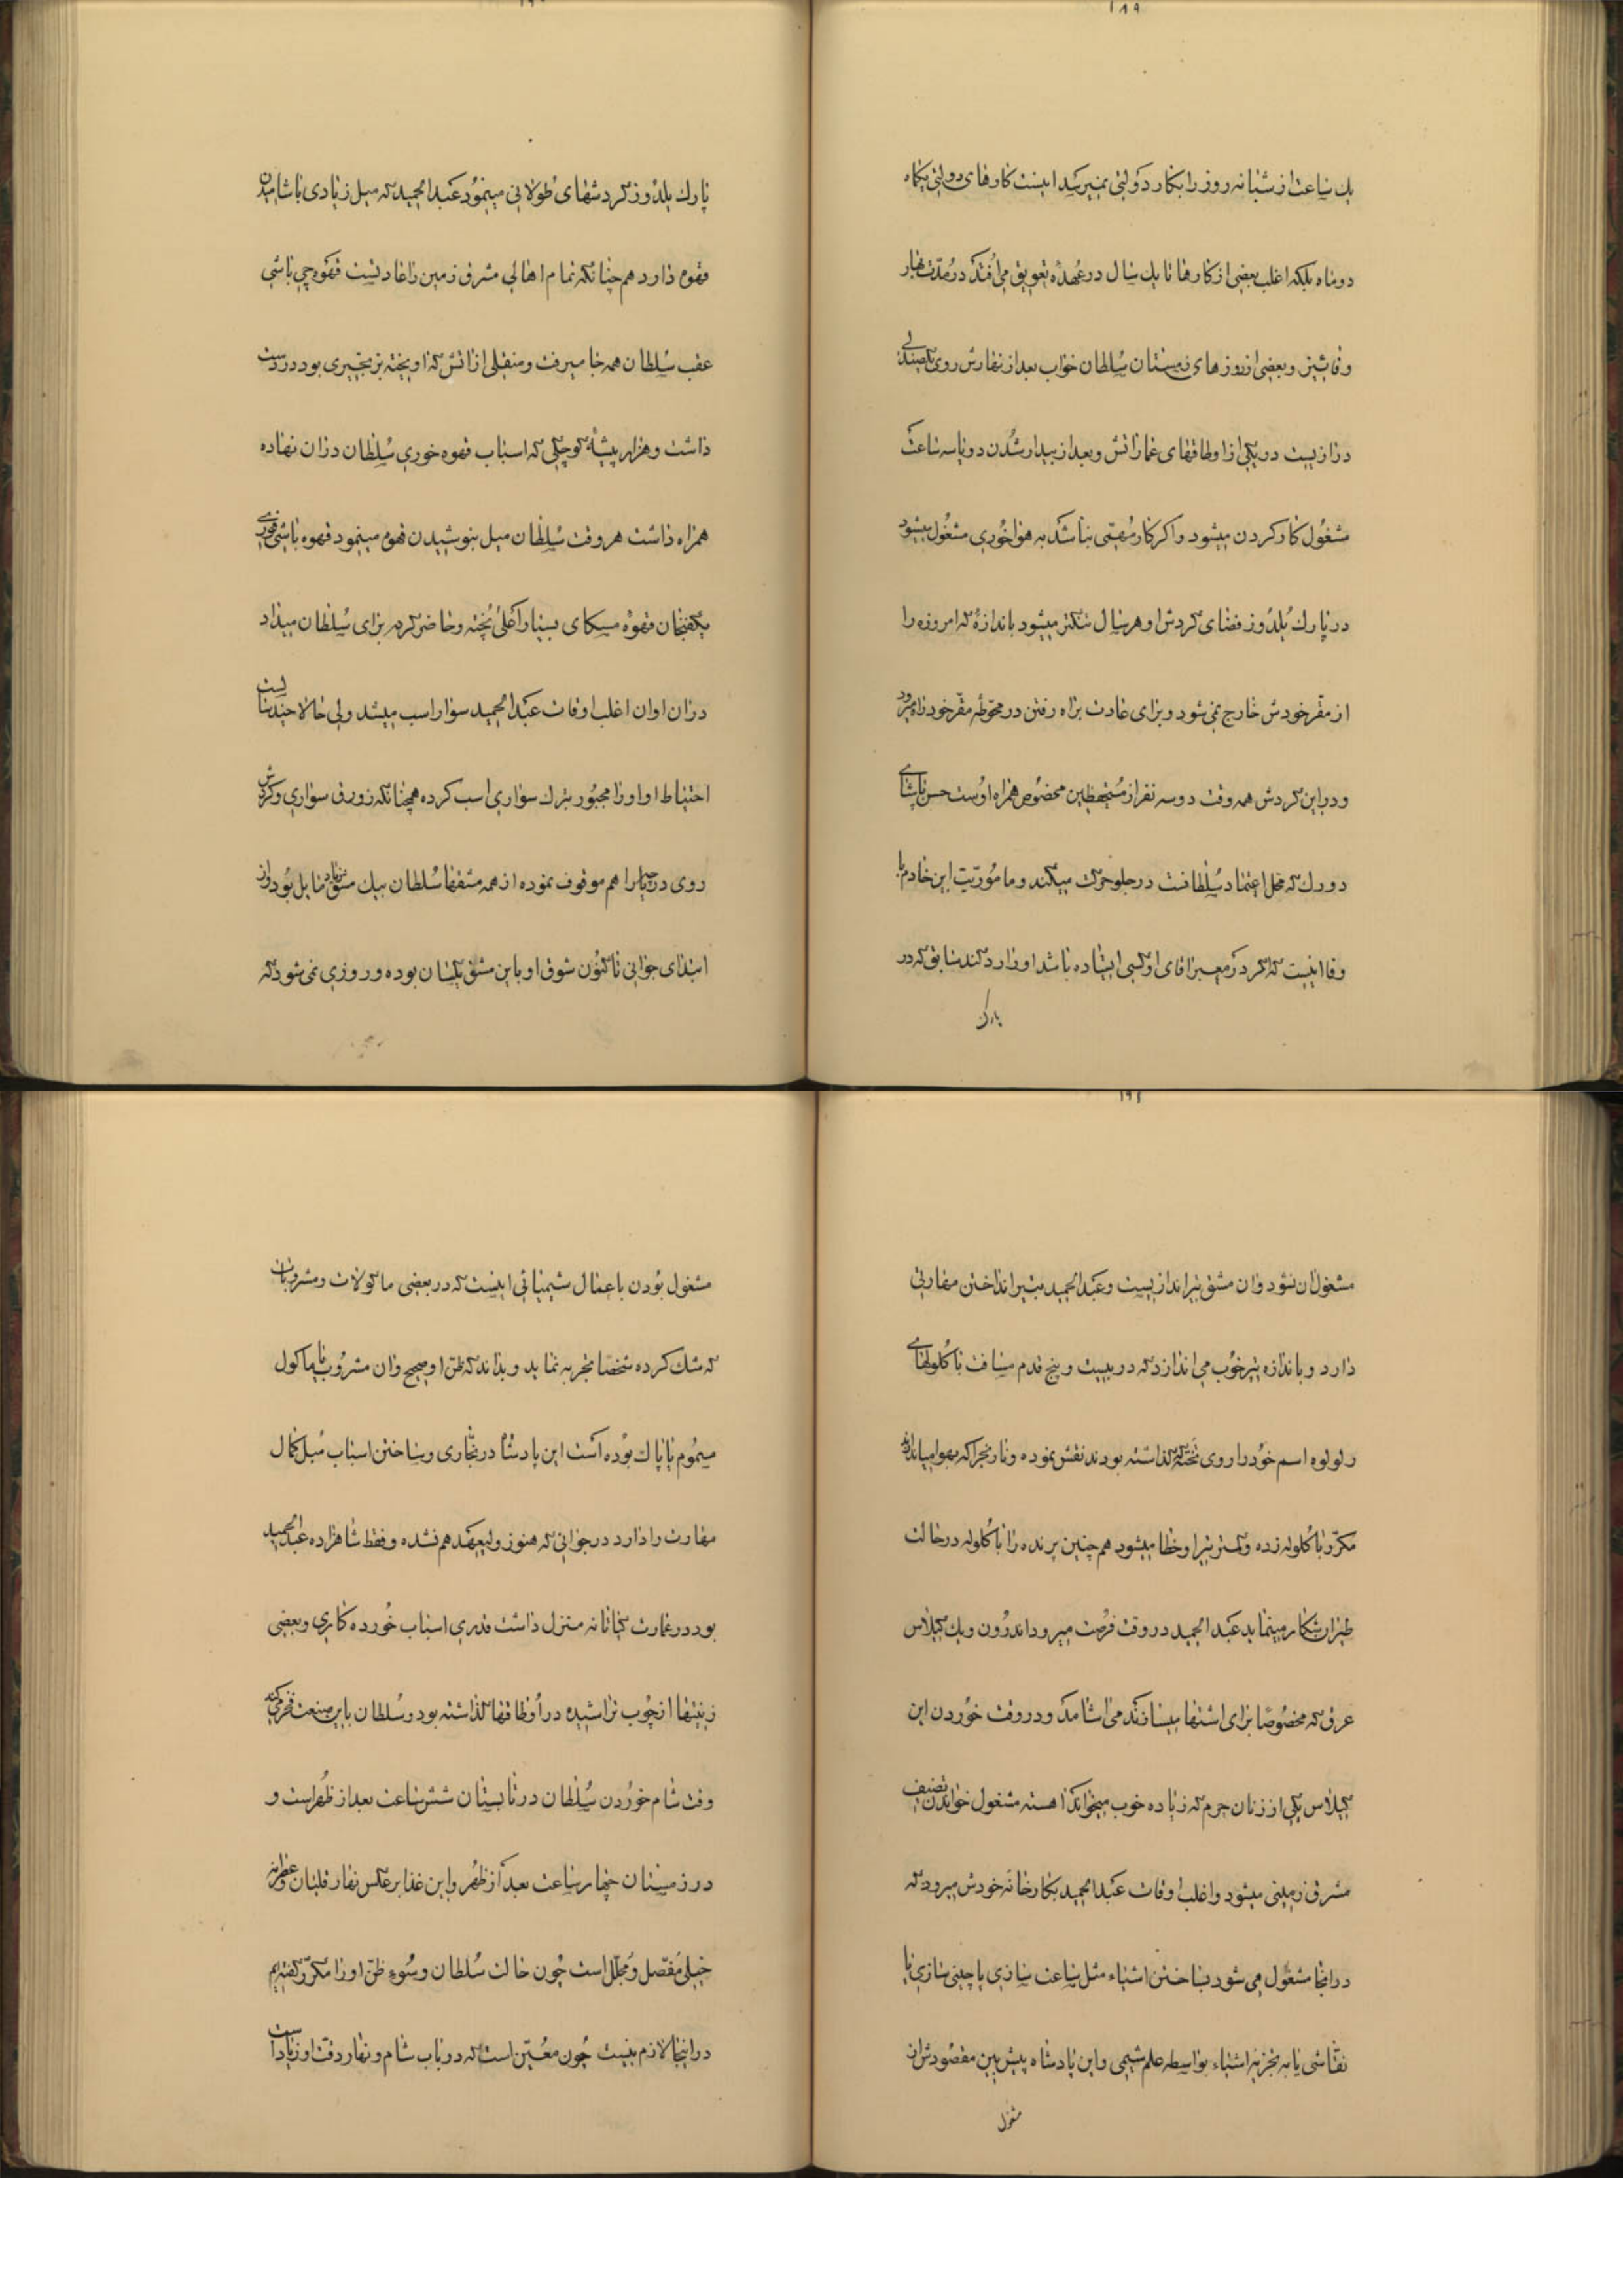 ۱۸۹
یک ساعت از شبانه روز را بکار دولتی نمیرسد اینست کارهای دولتی یکماه
دوماه بلکه اغلب بعضی از کارها تا یک سال در عهدهٔ تعویق می‌افتد در مدت بهار
و پائیز و بعضی از روزهای زمستان سلطان خواب بعد از نهارش روی یک صندلی
درازیست در یکی از اوطاقهای عماراتش و بعد از بیدار شدن دو یا سه ساعت
مشغول کار کردن میشود و اگر کار مهمی نباشد به هواخوری مشغول میشود
در پارک یلدوز فضای گردش او هر سال تنگتر میشود باندازهٔ که امروزه را
از مقر خودش خارج نمی‌شود و برای عادت براه رفتن در محوطهٔ مقر خود راه میرود
و در این گردش همه وقت دو سه نفر از مستحفظین مخصوص همراه اوست حسن پاشای
دورک که محل اعتماد سلطانست در جلو حرکت میکند و ماموریت این خادم با
وفا اینست که اگر در معبر اقای او کسی ایستاده باشد او را رد کند سابق که در
پارک
پارک یلدوز گردشهای طولانی مینمود عبدالحمید که میل زیادی باشامیدن
قهوه دارد هم چنانکه تمام اهالی مشرق زمین را عادتست قهوه چی باشی
عقب سلطان همه جا میرفت و منقلی از اتش که اویخته بزنجیری بود در دست
داشت و هزار پیشهٔ کوچکی که اسباب قهوه خوری سلطان در ان نهاده
همراه داشت هر وقت سلطان میل بنوشیدن قهوه مینمود قهوه باشی فوری
یکفنجان قهوهٔ مسکای بسیار اعلی پخته و حاضر کرده برای سلطان میداد
در ان اوان اغلب اوقات عبدالحمید سوار اسب میشد ولی حالا چندسالست
احتیاط او او را مجبور بترک سواری اسب کرده همچنانکه زورق سواری و گردش
روی دریاچه را هم موقوف نموده از همه مشقها سلطان بیک مشق زیاد مایل بود و از
ابتدای جوانی تاکنون شوق او باین مشق یکسان بوده و روزی نمی شود که
۱۹۱
مشغول ان نشود و ان مشق تیراندازیست و عبدالحمید بتیر انداختن مهارتی
دارد و باندازه تیر خوب می اندازد که در بیست و پنج قدم مسافت با گلولهای
رولوه اسم خود را روی تختهٔ که گذاشته بودند نقش نموده و نارنجرا که بهوا میاندازند
مکرر با گلوله زده و کمتر تیر او خطا میشود هم چنین پرنده را با گلوله در حالت
طیران شکار مینماید عبدالحمید در وقت فرصت میرود اندرون و یک گیلاس
عرق که مخصوصا برای اشتها میسازند می اشامد و در وقت خوردن این
گیلاس یکی از زنان حرم که زیاده خوب میخواند اهسته مشغول خواندن تصنیف
مشرق زمینی میشود و اغلب اوقات عبدالحمید بکارخانهٔ خودش میرود که
در انجا مشغول می شود بساختن اشیاء مثل ساعت سازی یا چینی سازی یا
نقاشی یا به تجزیهٔ اشیاء بواسطه علم شیمی و این پادشاه پیش بین مقصودش از
مشغول
مشغول بودن باعمال شیمیائی اینست که در بعضی ماکولات و مشروبات
که شک کرده شخصا تجربه نماید و بداند که ظن او صحیح و ان مشروب یا ماکول
مسموم یا پاک بوده است این پادشاه در نجاری و ساختن اسباب مبل کمال
مهارت را دارد در جوانی که هنوز ولیعهد هم نشده و فقط شاهزاده عبدالحمید
بود در عمارت کیاتانه منزل داشت قدری اسباب خورده کاری و بعضی
زینتها از چوب تراشیده در اوطاقها گذاشته بود و سلطان باین صنعت فخر میکند
وقت شام خوردن سلطان در تابستان شش ساعت بعد از ظهر است و
در زمستان چهار ساعت بعد از ظهر و این غذا بر عکس نهار قلیان و عطریه
خیلی مفصل و مجلل است چون حالت سلطان و سوء ظن او را مکرر گفته‌ایم
در اینجا لازم نیست چون معین است که در باب شام و نهار دقت او زیاد است